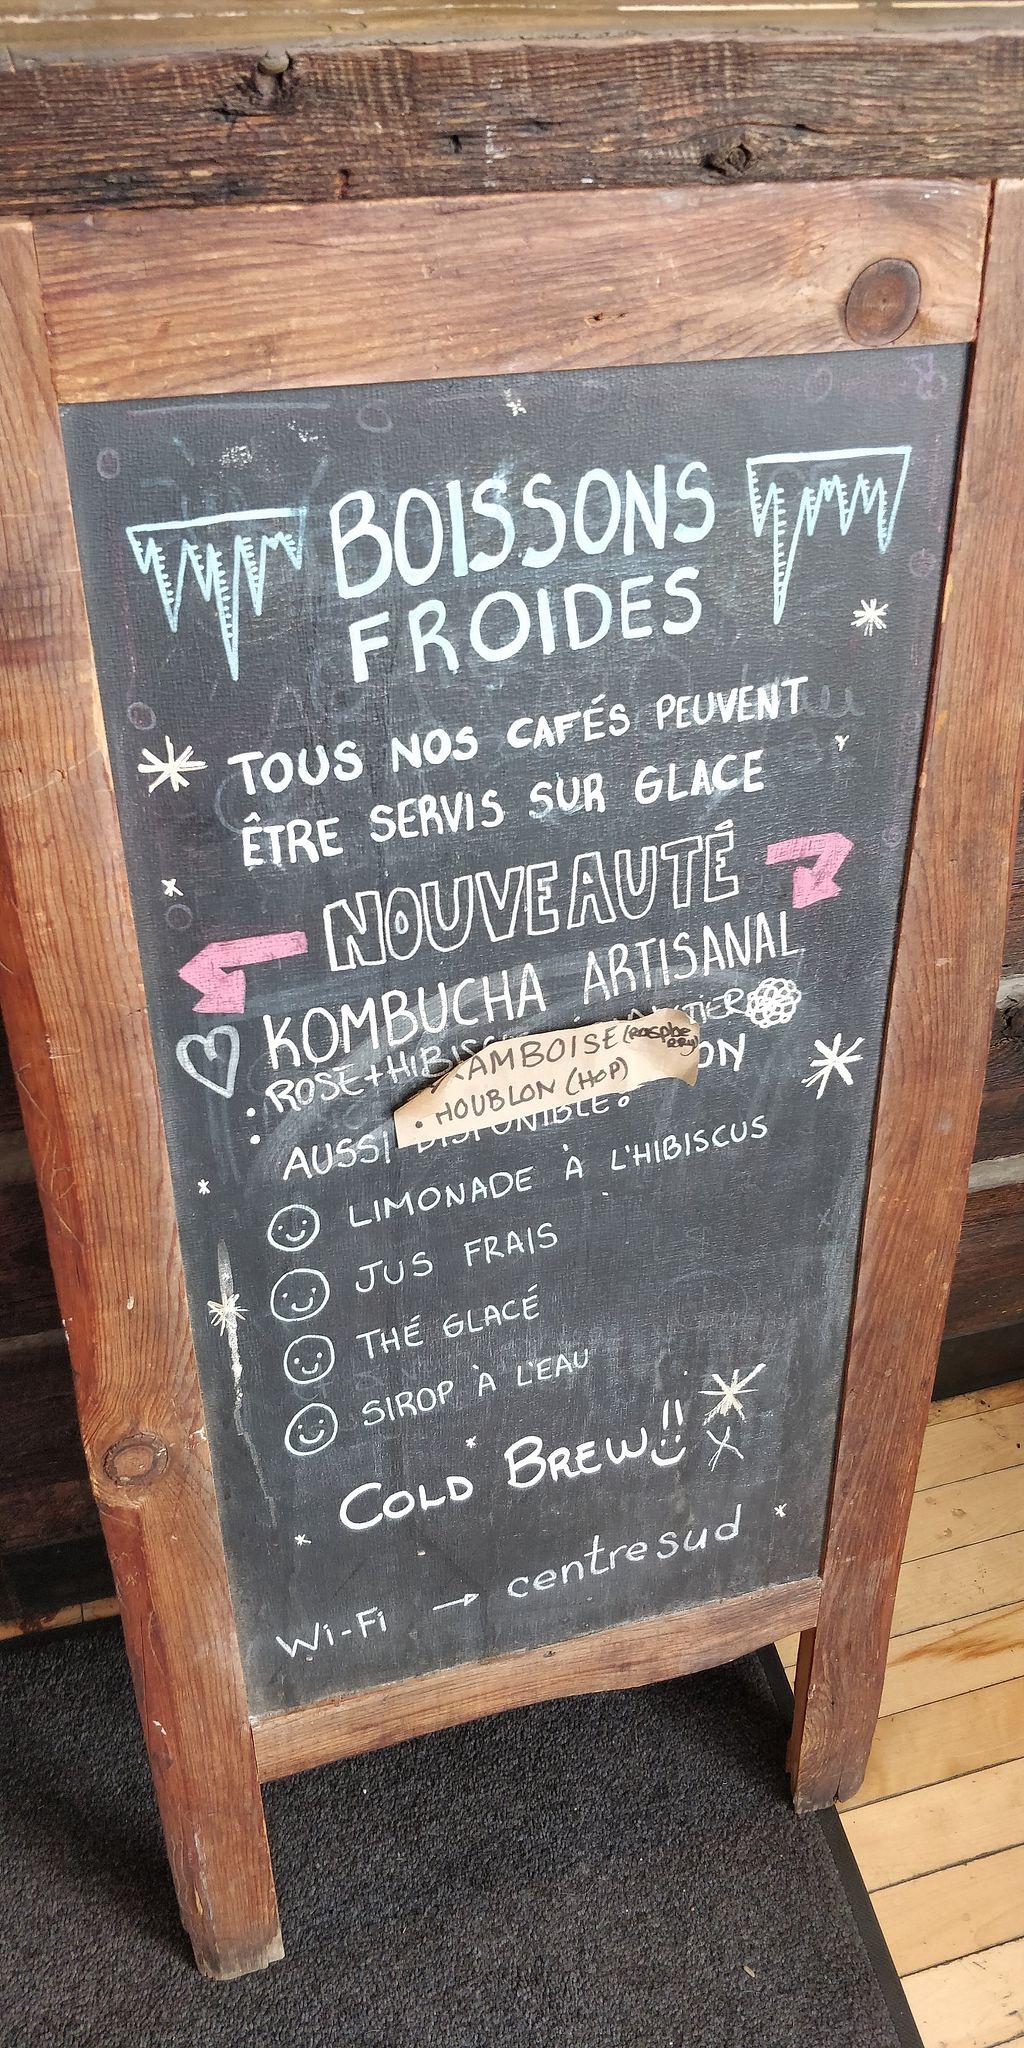 BOISSONS
FROIDES
TOUS NOS CAFÉS PEUVENT
ÊTRE SERVIS SUR GLACE
NOUVEAUTÉ
KOMBUCHA ARTISANAL
• ROSE + HIBISC
AMBOISE (RASPBERRY)
• HOUBLON (HOP)
ON
•
AUSSI DISPONIBLE:
LIMONADE À L'HIBISCUS
JUS FRAIS
THÉ GLACÉ
SIROP À L'EAU
COLD BREW!!
Wi-Fi → centresud